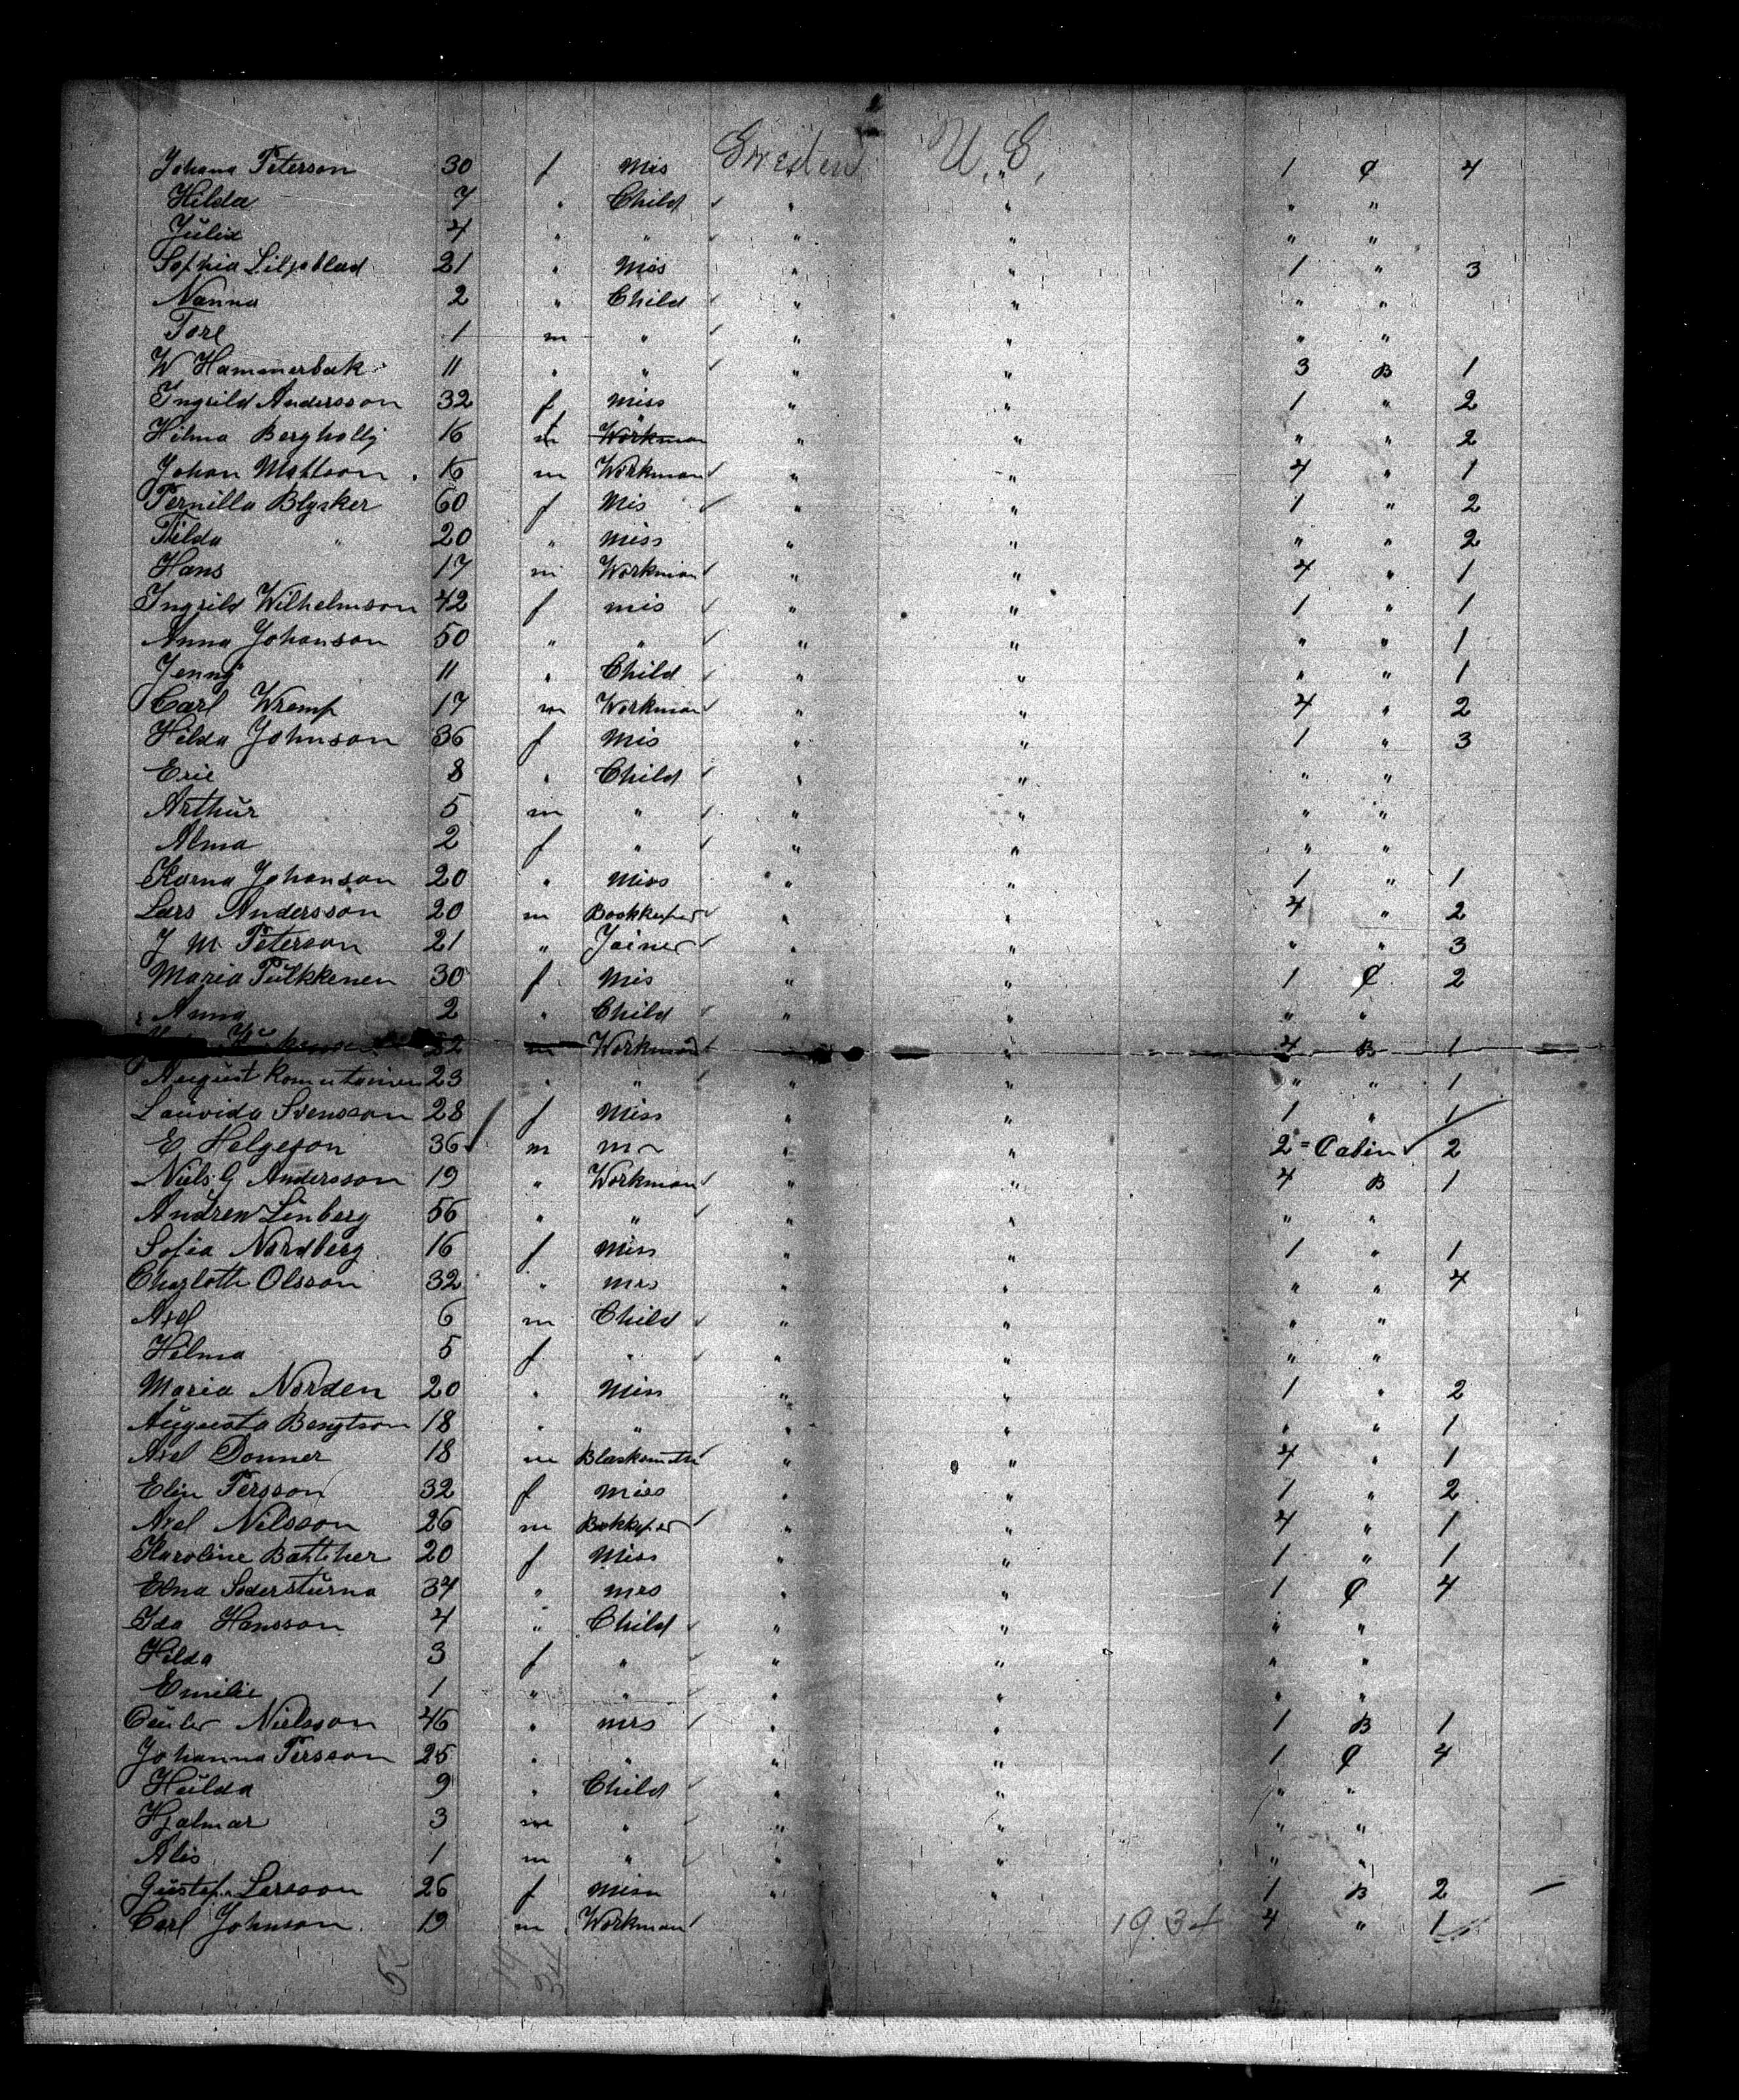 Sweden U. S.
Johana Peterson 30 f Mis " " 1 C 4
Hilda 7 " Child ✓ " " " "
Julia 4 " " ✓ " " " "
Sophia Liljeblad 21 " Miss " " 1 " 3
Nanna 2 " Child ✓ " " " "
Tore 1 m " ✓ " " " "
W Hammerbak 11 " " ✓ " " 3 B 1
Ingrild Andersson 32 f Miss " " 1 " 2
Hilma 16 f " Workman " " " " 2
Johan Mattson 16 m Workman ✓ " " 4 " 1
Pernilla Blysker 60 f Mis ✓ " " 1 " 2
Tilda " 20 " Miss " " " " 2
Hans 17 m Workman ✓ " " 4 " 1
Ingrild Wilhelmson 42 f mis ✓ " " 1 " 1
Anna Johanson 50 " " ✓ " " " " 1
Jenny 11 " Child ✓ " " " " 1
Carl Wremp 17 m Workman ✓ " " 4 " 2
Hilda Johnson 36 f Mis " " 1 " 3
Eric 8 " Child ✓ " " " "
Arthur 5 m " ✓ " " " "
Alma 2 f " ✓ " " " "
Karna Johanson 20 " Miss " " 1 " 1
Lars Andersson 20 m Bookkeper ✓ " " 4 " 2
J M Peterson 21 " Joiner ✓ " " " " 3
Maria Pulkkenen 30 f Mis " " 1 C 2
Anna 2 " Child ✓ " " " "
m Workman ✓ " 4 B 1
August 23 " " ✓ " " " " 1
Lauvida Svensson 28 f Miss " " 1 " 1
E Helgeson 36 ✓ m Mr " " 2 = Cabin ✓ 2
Niels G Andersson 19 " Workman ✓ " " 4 B 1
Andrew Linberg 56 " " ✓ " " " "
Sofia Nordberg 16 f Miss " " 1 " 1
Charlotte Olsson 32 " mrs " " " " 4
Axel 6 m Child ✓ " " " "
Hilma 5 f " ✓ " " " "
Maria Norden 20 " Miss " " 1 " 2
Augusta Bengtson 18 " " " " " " 1
Axel Donner 18 m Blacksmith ✓ " " 4 " 1
Elin Persson 32 f Miss " " 1 " 2
Axel Nilsson 26 m Bokkeper ✓ " " 4 " 1
Karoline Battcher 20 f Miss " " 1 " 1
Elna Soderstурna 34 " mrs " " 1 C 4
Ida Hansson 4 " Child ✓ " " " "
Hilda 3 f " ✓ " " " "
Emilie 1 " " ✓ " " " "
Nielsson 46 " mrs ✓ " " 1 B 1
Johanna Persson 25 " " " " 1 C 4
Hulda 9 " Child ✓ " " " "
Hjalmar 3 m " ✓ " " " "
Alis 1 m " ✓ " " " "
Gustafa Larsson 26 f Miss " " 1 B 2 —
Carl Johnson 19 m Workman ✓ 19.34 4 " 1
53 19 34